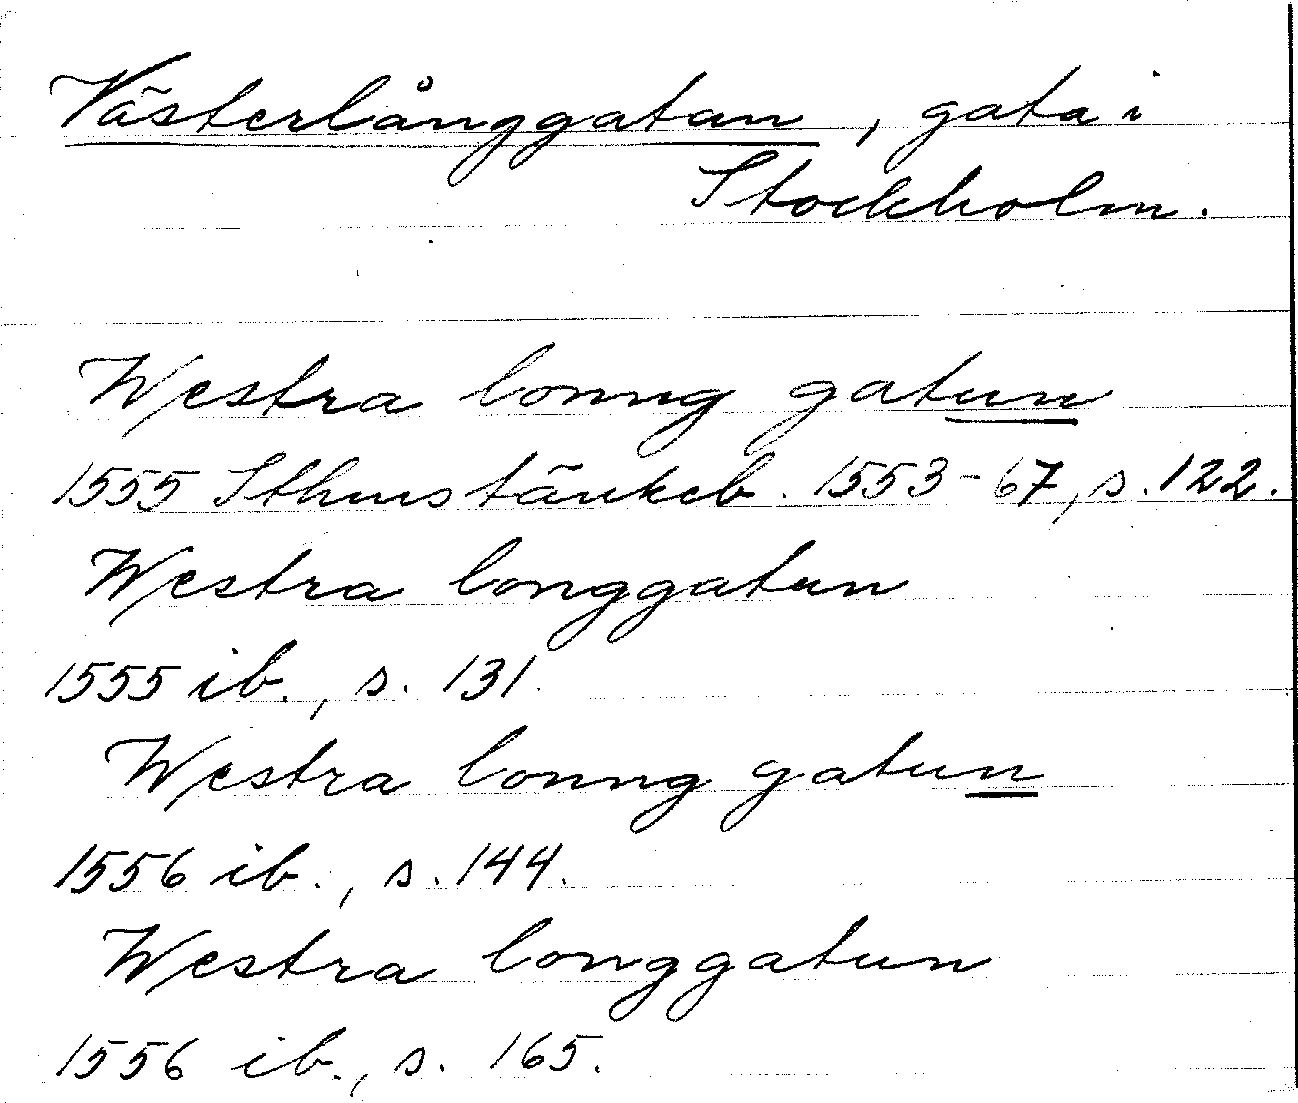 Västerlånggatan, gata i
Stockholm.
Westra lonng gatun
1555 Sthms tänkeb. 1553-67, s. 122.
Westra longgatun
1555 ib., s. 131.
Westra lonng gatun
1556 ib., s. 144.
Westra longgatun
1556 ib., s. 165.